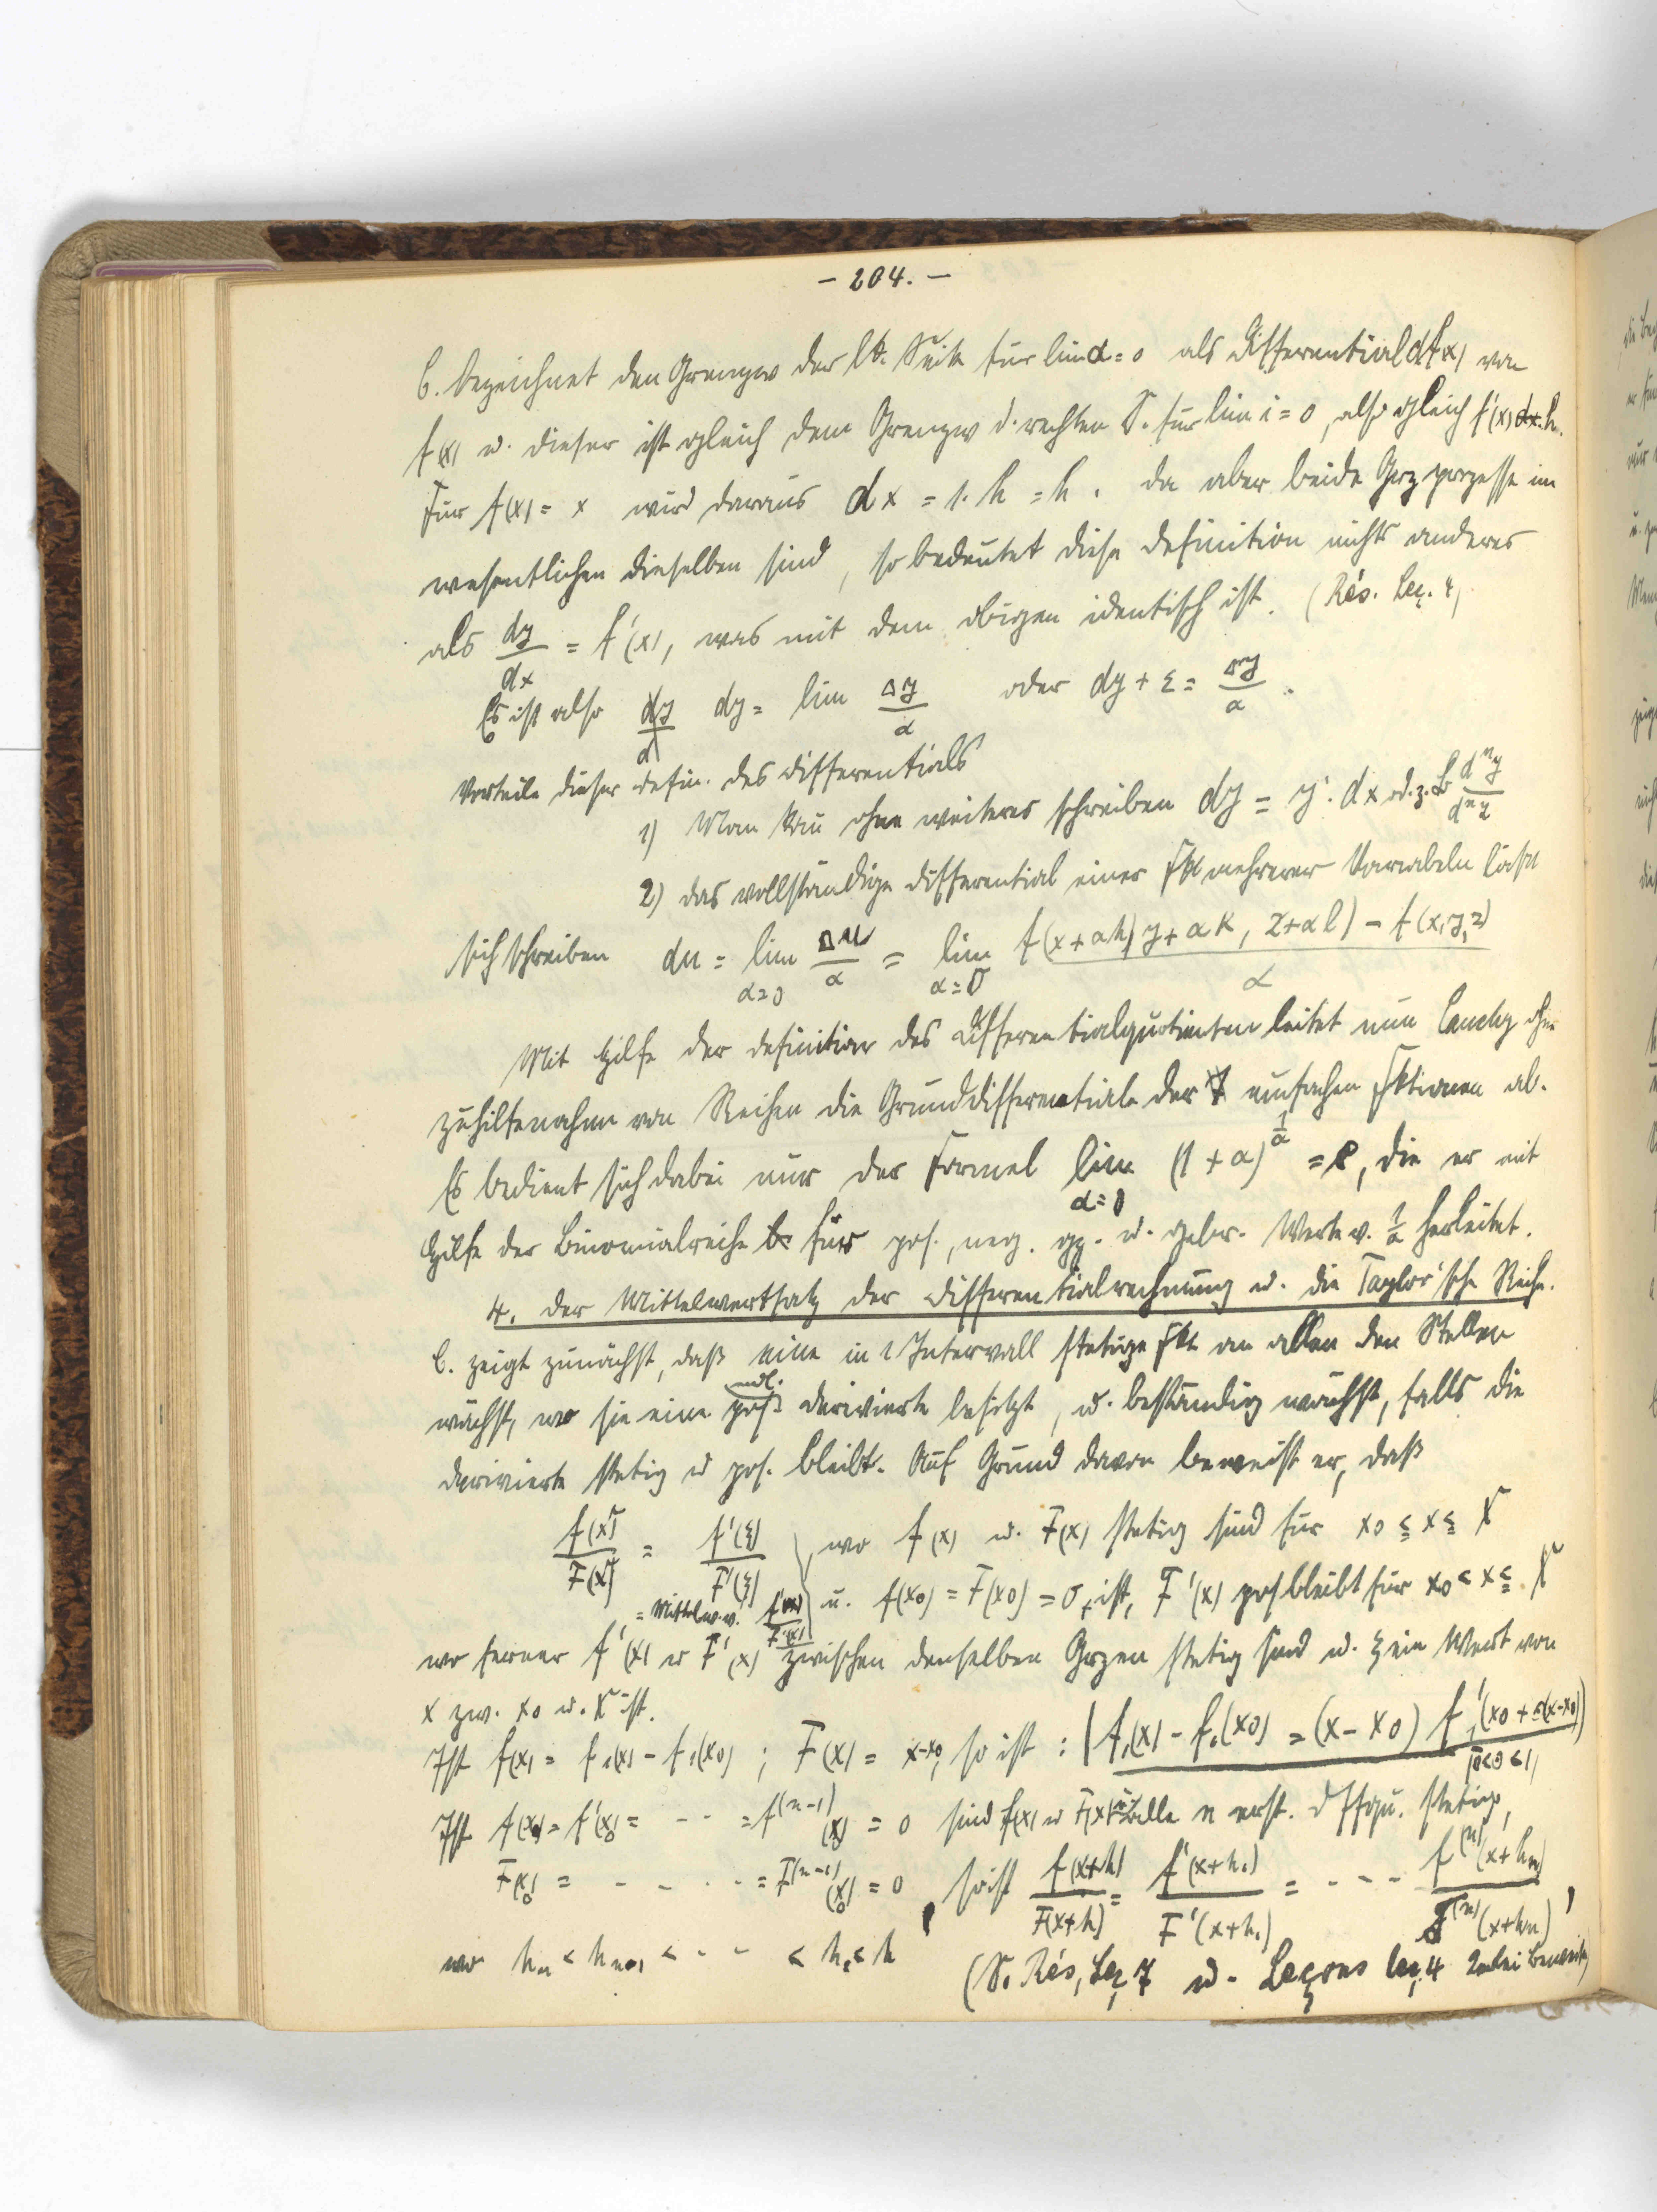 – 204. –
C. bezeichnet den Grenzw der lk. Seite für lim α = 0 als Differential df(x) von
f(x) u. dieser ist gleich dem Grenzw d. rechten S. für lim i = 0, also gleich f'(x) h.
Für f(x) = x wird daraus dx = 1. h = h. Da aber beide Grzprozesse im
wesentlichen dieselben sind, so bedeutet diese Definition nichts anderes
als dy/dx = f'(x), was mit dem obigen identisch ist. (Rés. Leç. 4)
Es ist also dy = lim Δy/α oder dy + ε = Δy/α.
Vorteile dieser Defin. des Differentials
1) Man kan ohne weiteres schreiben dy = y'. dx od. z. B dⁿy/dⁿz
2) das vollständige Differential einer Fkt mehrerer Variabeln läßt
sich schreiben du = lim α=0 Δu/α = lim α=0 f(x+αh, y+αk, z+αl) – f(x,y,z) / α
Mit Hilfe der Definition des Differentialquotienten leitet nun Cauchy ohne
Zuhilfenahme von Reihen die Grunddifferentiale der einfachen Fktionen ab.
Es bedient sich dabei nur der Formel lim α=0 (1 + α)^1/α = e, die er mit
Hilfe der Binomialreihe für pos., neg. gz. u. gebr. Werte v. 1/α herleitet.
4. Der Mittelwertsatz der Differentialrechnung u. die Taylor'sche Reihe.
C. zeigt zunächst, daß eine in 1 Intervall stetige Fkt an allen den Stellen
wächst, wo sie eine endl. pos. Derivierte besitzt, u. beständig wächst, falls die
Derivierte stetig u pos. bleibt. Auf Grund davon beweist er, daß
f(X)/F(X) = f'(ξ)/F'(ξ) , wo f(x) u. F(x) stetig sind für x₀ ≦ x ≦ X
= Mittelw. v. f'(x)/F'(x) u. f(x₀) = F(x₀) = 0, ist, F'(x) pos bleibt für x₀ < x ≦ X
wo ferner f'(x) u F'(x) zwischen denselben Grzen stetig sind u. ξ ein Wert von
x zw. x₀ u. X ist.
Ist f(x) = f₁(x) – f₁(x₀) ; F(x) = x–x₀, so ist : f₁(x) – f₁(x₀) = (x – x₀) f₁'(x₀ + θ(x–x₀)) 0<θ<1
Ist f(x₀) = f'(x₀) = - - = f⁽ⁿ⁻¹⁾(x₀) = 0 sind f(x) u F(x) u. alle n erst. Dffqu. stetig,
F(x₀) = - - - - = F⁽ⁿ⁻¹⁾(x₀) = 0, so ist f(x+h)/F(x+h) = f'(x+h₁)/F'(x+h₁) = - - - f⁽ⁿ⁾(x+hₙ)/F⁽ⁿ⁾(x+hₙ),
wo hₙ < hₙ₋₁ < - - < h₁ < h (S. Rés, Leç 7 u. Leçons leç. 4 2erlei Beweise)